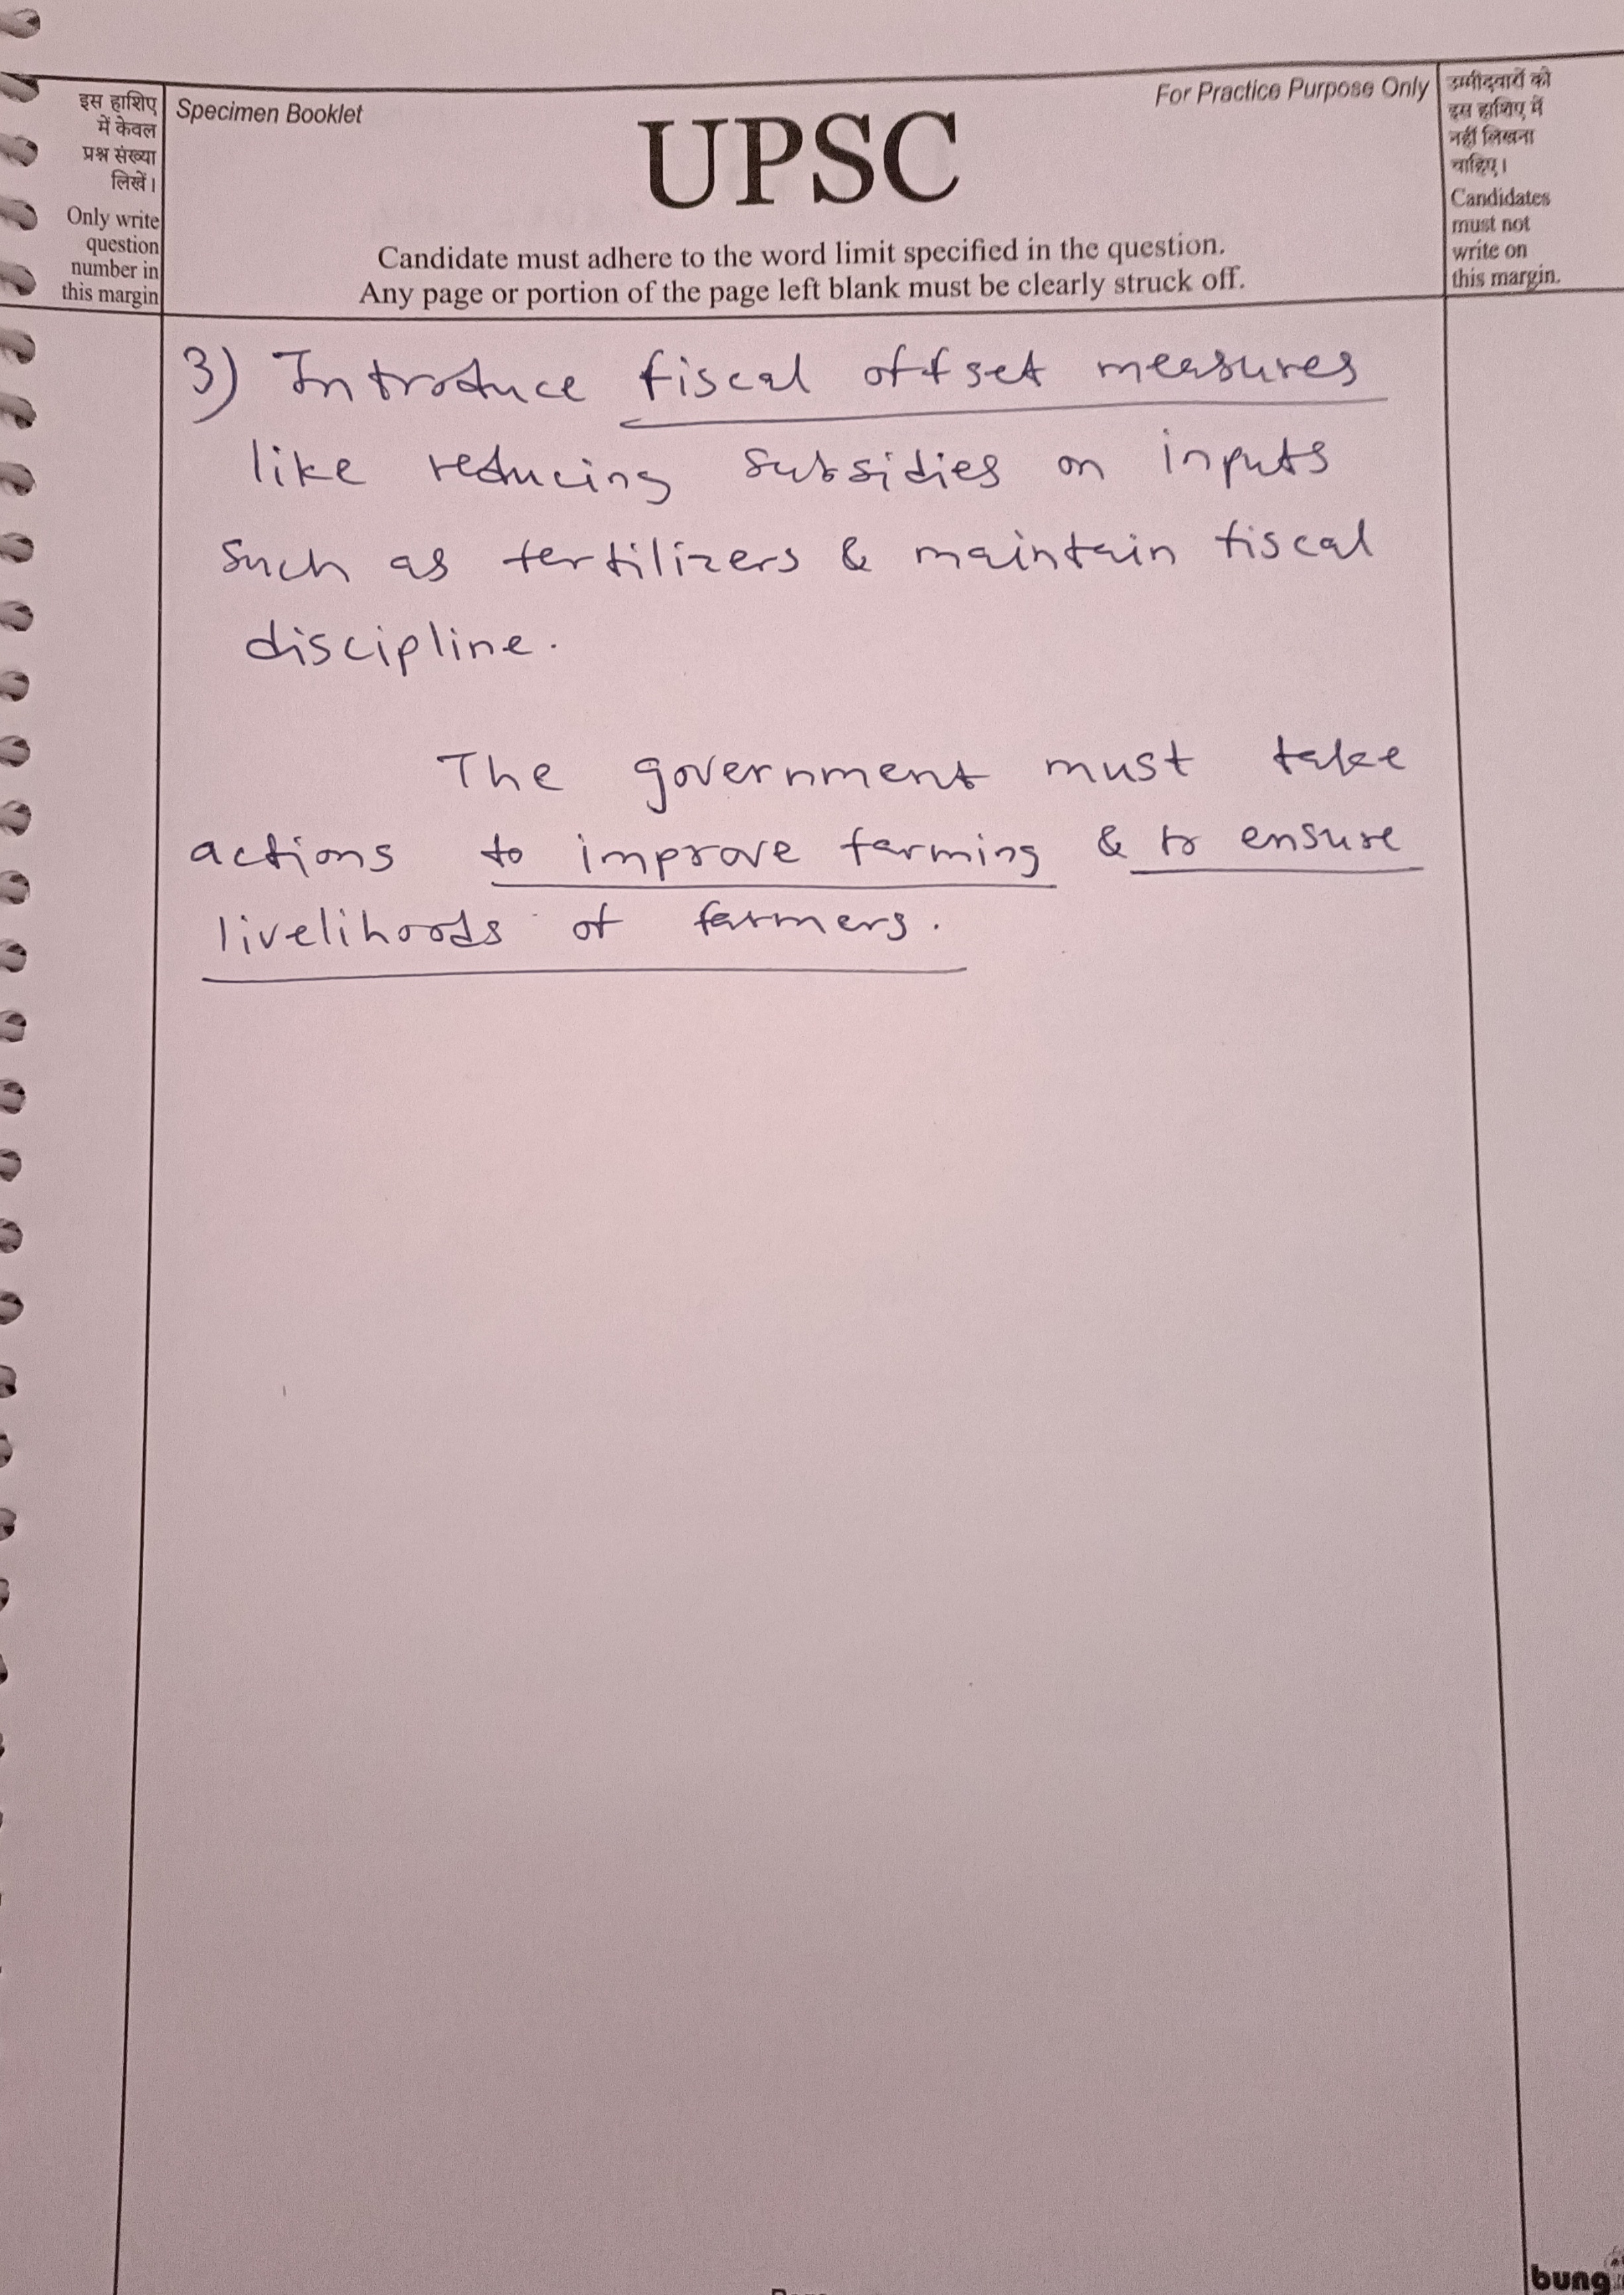 इस हाशिए
में केवल
प्रश्न संख्या
लिखें।
Only write
question
number in
this margin
Specimen Booklet
For Practice Purpose Only
UPSC
Candidate must adhere to the word limit specified in the question.
Any page or portion of the page left blank must be clearly struck off.
उम्मीदवारों को
इस हाशिए में
नहीं लिखना
चाहिए।
Candidates
must not
write on
this margin.
3) Introduce fiscal offset measures
like reducing subsidies on inputs
such as fertilizers & maintain fiscal
discipline.
The government must take
actions to improve farming & to ensure
livelihoods of farmers.